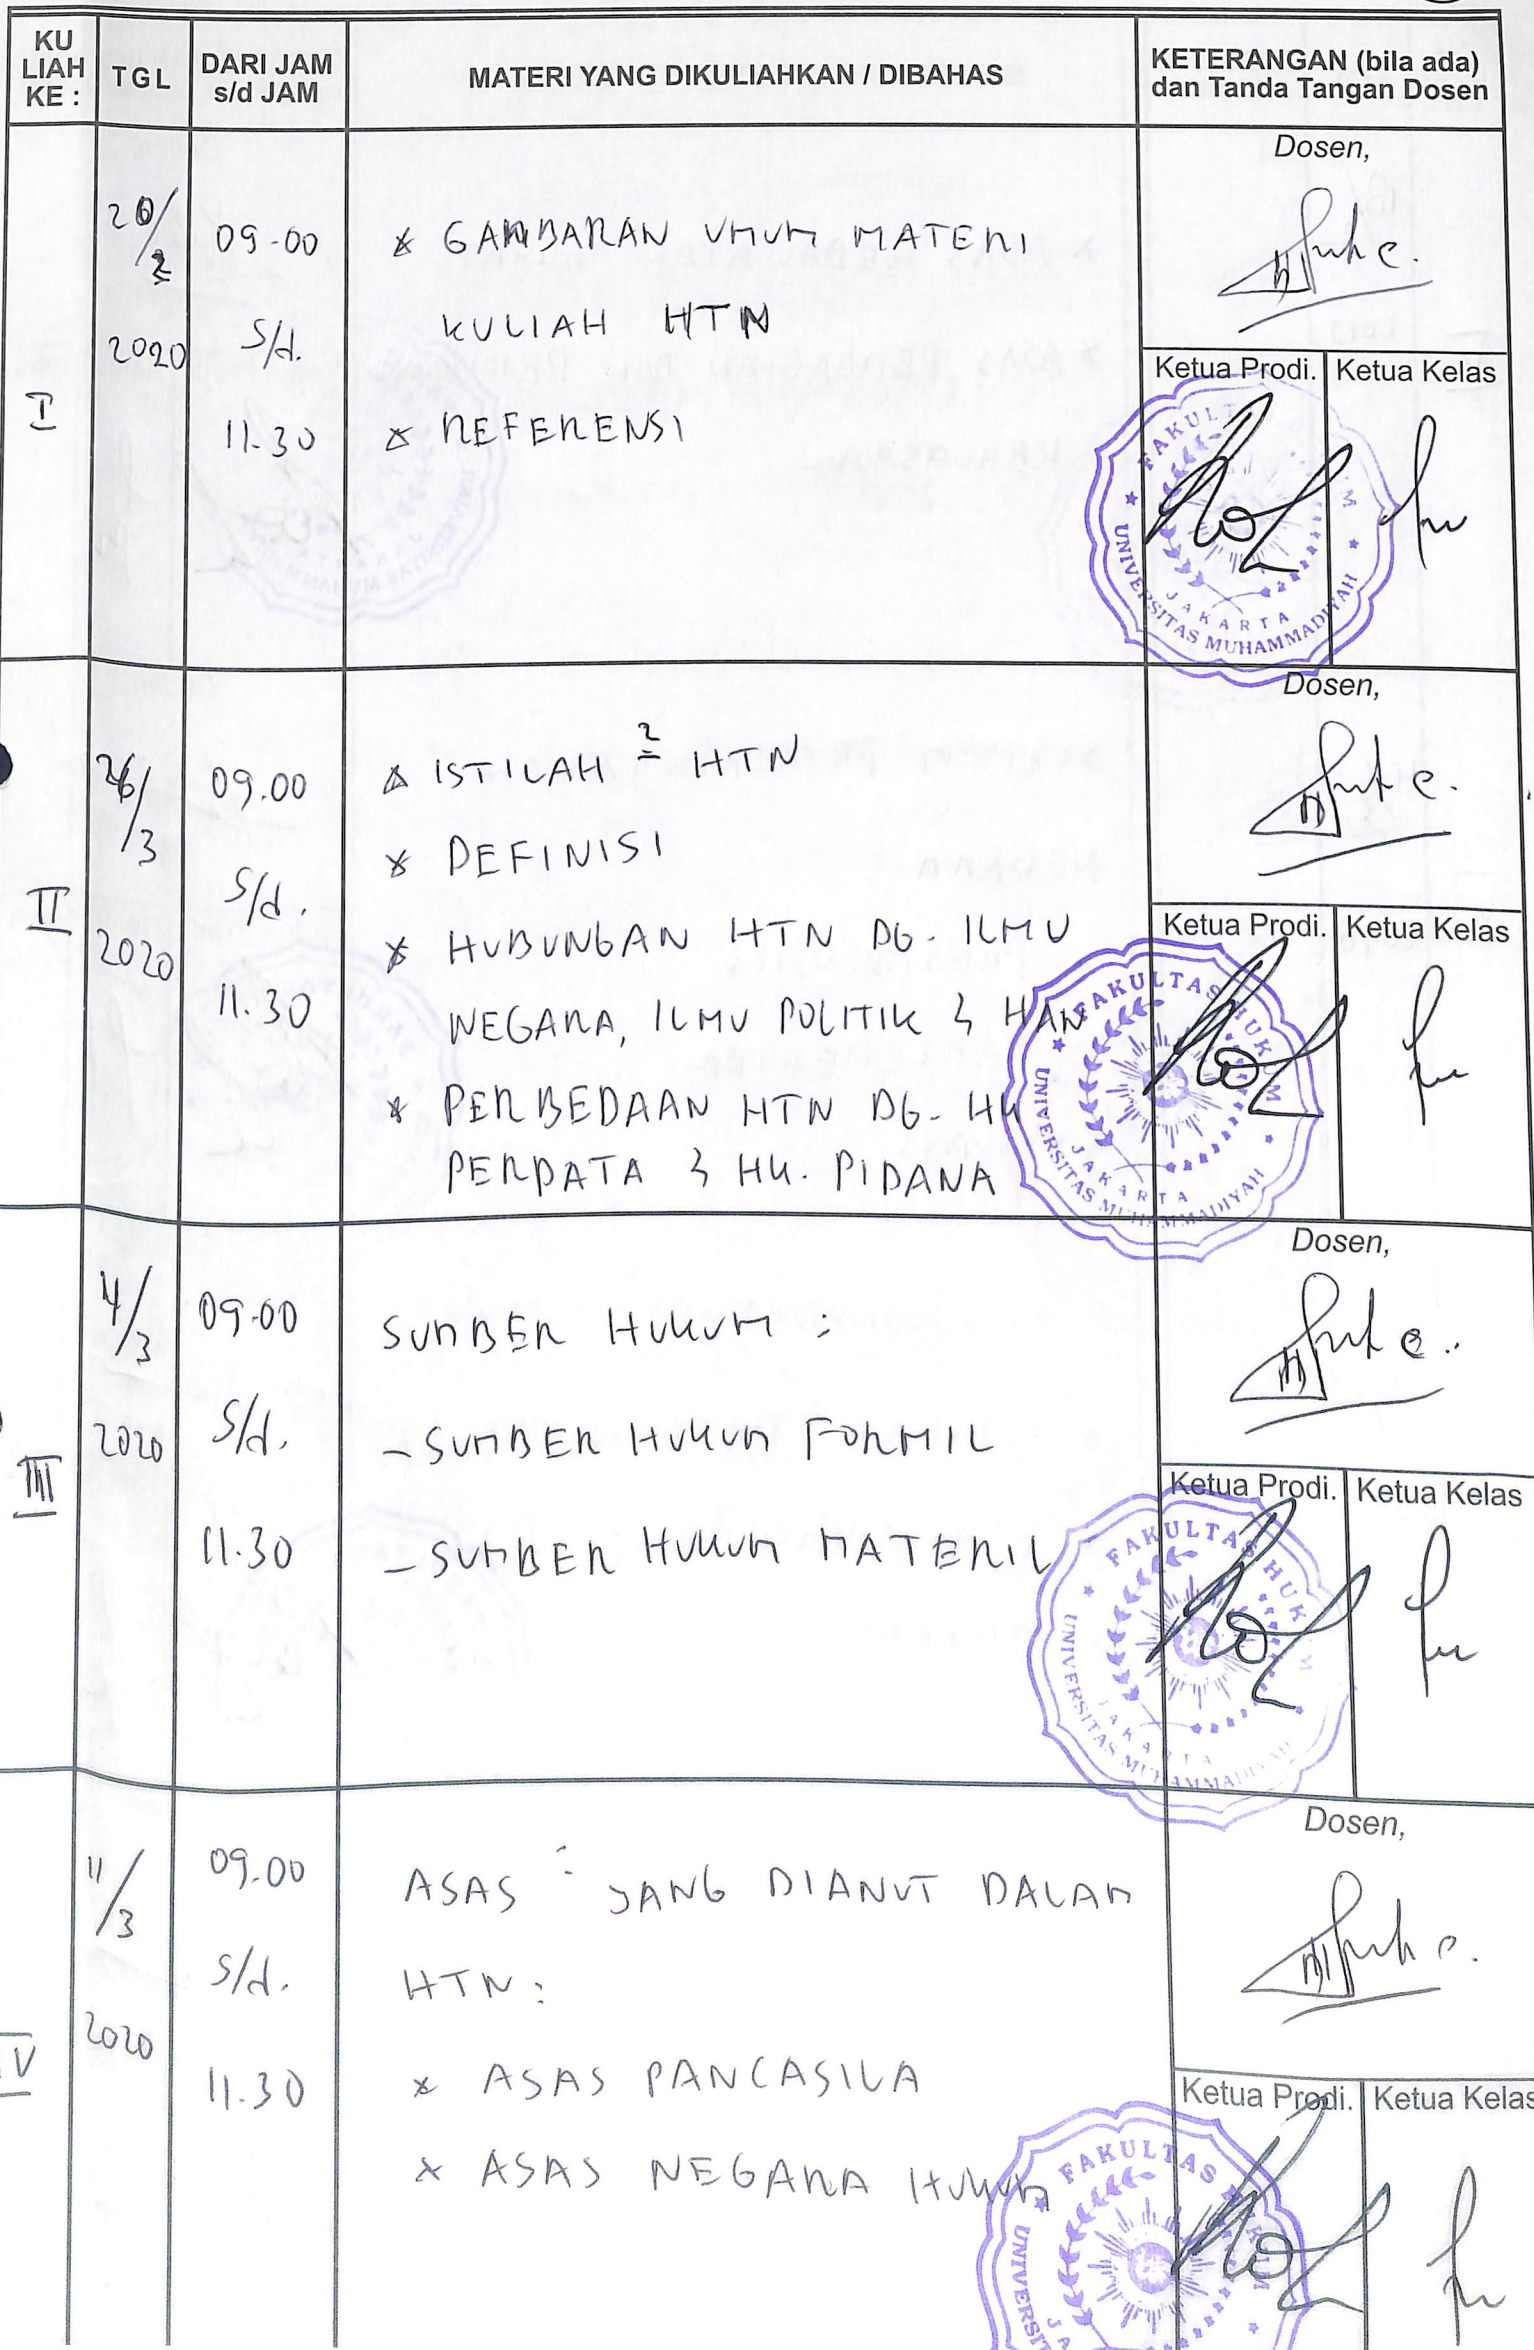 KU LIAH KE :
TGL
DARI JAM s/d JAM
MATERI YANG DIKULIAHKAN / DIBAHAS
KETERANGAN (bila ada)
dan Tanda Tangan Dosen
I
20/2
2020
09-00
s/d.
11.30
* GAMBARAN UMUM MATERI
KULIAH HTN
* REFERENSI
Dosen,
Ketua Prodi.
Ketua Kelas
FAKULT M
UNIVERSITAS MUHAMMADIYAH
JAKARTA
II
26/3
2020
09.00
s/d.
11.30
* ISTILAH 2 HTN
* DEFINISI
* HUBUNGAN HTN DG. ILMU
NEGARA, ILMU POLITIK & HAN
* PERBEDAAN HTN DG. HK
PERDATA & HK. PIDANA
Dosen,
Ketua Prodi.
Ketua Kelas
FAKULTAS HUKUM
UNIVERSITAS MUHAMMADIYAH
JAKARTA
III
4/3
2020
09.00
s/d.
11.30
SUMBER HUKUM :
- SUMBER HUKUM FORMIL
- SUMBER HUKUM MATERIL
Dosen,
Ketua Prodi.
Ketua Kelas
FAKULTAS HUK M
UNIVERSITAS MUHAMMADIYAH
JAKARTA
IV
11/3
2020
09.00
s/d.
11.30
ASAS = YANG DIANUT DALAM
HTN :
* ASAS PANCASILA
* ASAS NEGARA HUKUM
Dosen,
Ketua Prodi.
Ketua Kelas
FAKULTAS
UNIVERSIT